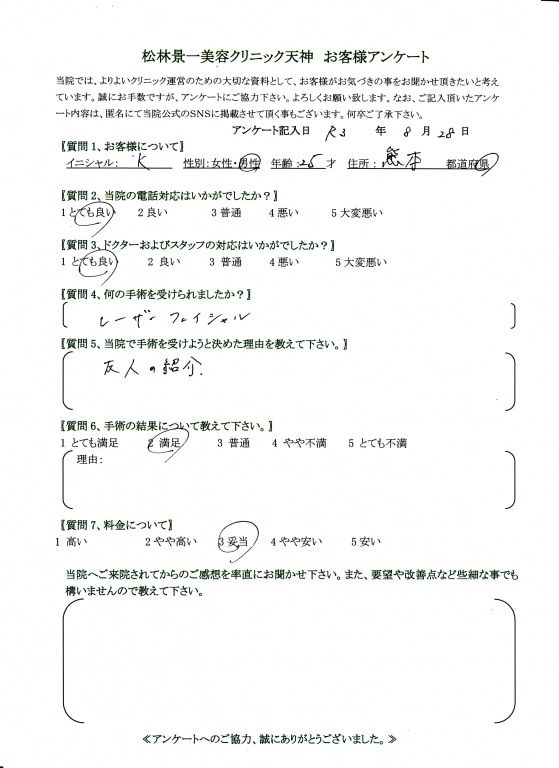 松林景一美容クリニック天神　お客様アンケート
当院では、よりよいクリニック運営のための大切な資料として、お客様がお気づきの事をお聞かせ頂きたいと考え
ています。誠にお手数ですが、アンケートにご協力下さい。よろしくお願い致します。なお、ご記入頂いたアンケ
ート内容は、匿名にて当院公式のSNSに掲載させて頂く事もございます。何卒ご了承下さい。
アンケート記入日　R3　年　8　月　28　日
【質問1、お客様について】
イニシャル：　K　性別：女性・男性　年齢：25　才　住所：　熊本　都道府県
【質問2、当院の電話対応はいかがでしたか？】
1 とても良い　2 良い　3 普通　4 悪い　5 大変悪い
【質問3、ドクターおよびスタッフの対応はいかがでしたか？】
1 とても良い　2 良い　3 普通　4 悪い　5 大変悪い
【質問4、何の手術を受けられましたか？】
レーザーフェイシャル
【質問5、当院で手術を受けようと決めた理由を教えて下さい。】
友人の紹介.
【質問6、手術の結果について教えて下さい。】
1 とても満足　2 満足　3 普通　4 やや不満　5 とても不満
理由：
【質問7、料金について】
1 高い　2 やや高い　3 妥当　4 やや安い　5 安い
当院へご来院されてからのご感想を率直にお聞かせ下さい。また、要望や改善点など些細な事でも
構いませんので教えて下さい。
≪アンケートへのご協力、誠にありがとうございました。≫